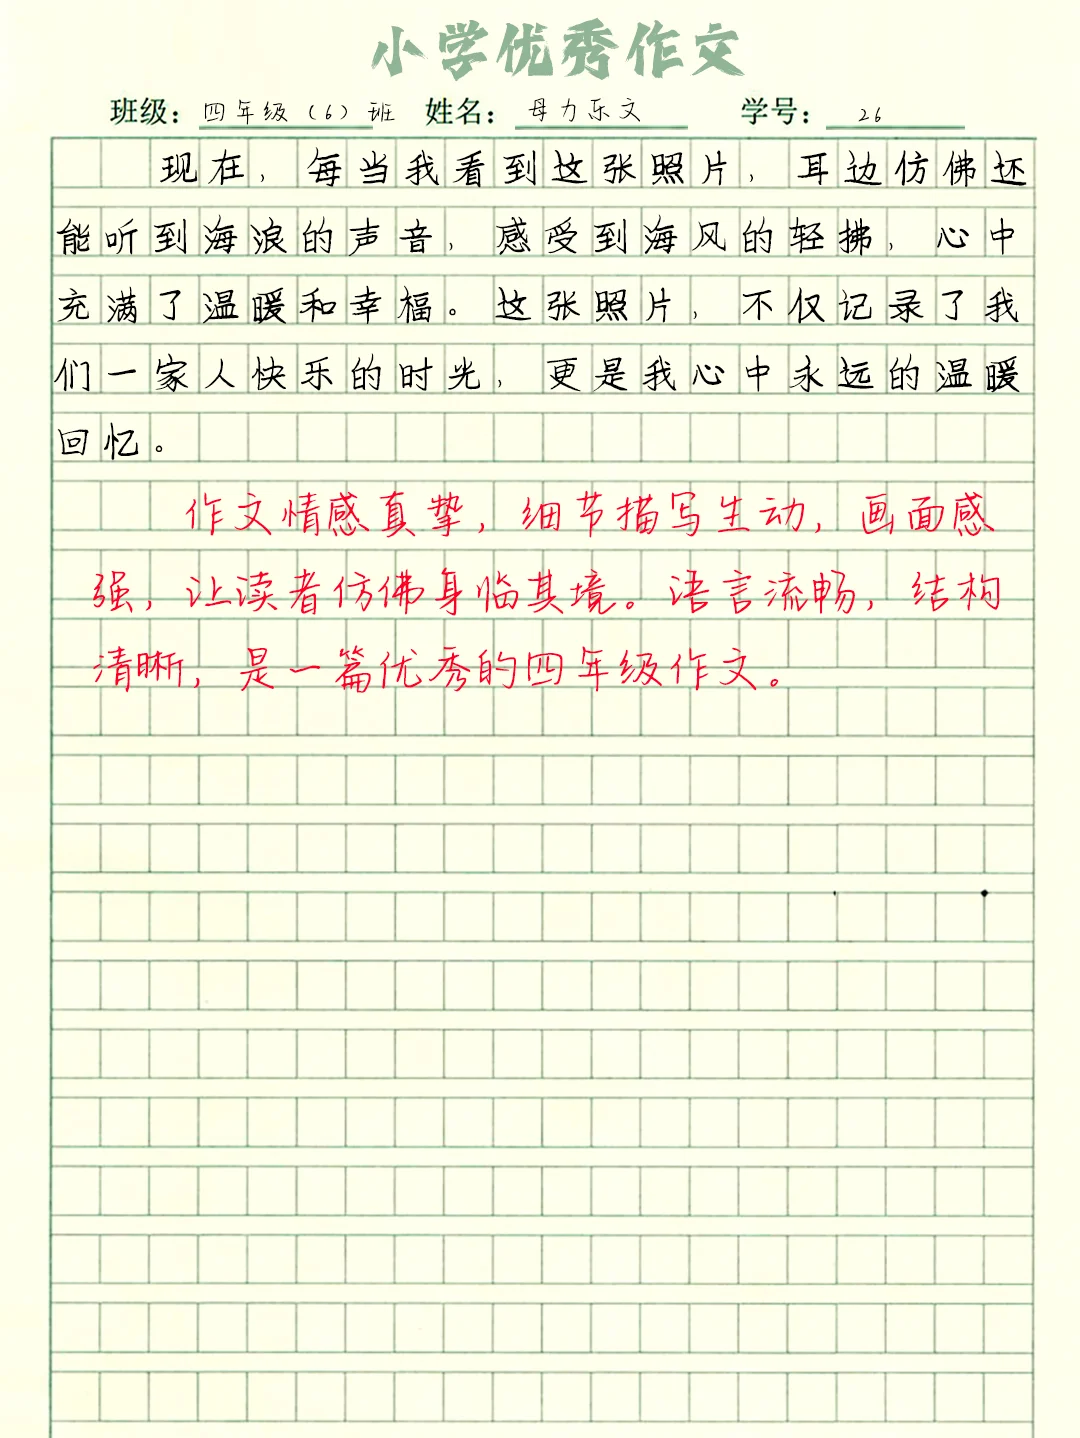 小学优秀作文
班级：四年级（6）班 姓名：母力乐文 学号：26
现在，每当我看到这张照片，耳边仿佛还
能听到海浪的声音，感受到海风的轻拂，心中
充满了温暖和幸福。这张照片，不仅记录了我
们一家人快乐的时光，更是我心中永远的温暖
回忆。
作文情感真挚，细节描写生动，画面感
强，让读者仿佛身临其境。语言流畅，结构
清晰，是一篇优秀的四年级作文。